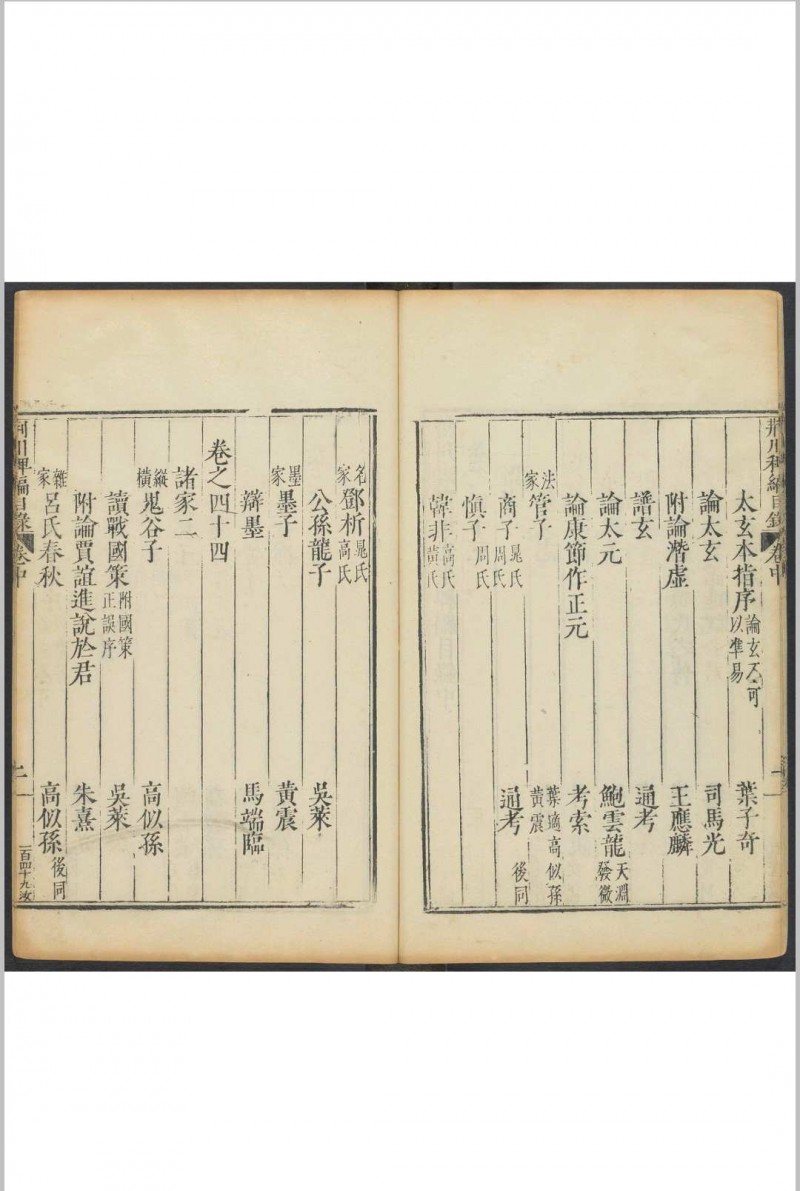 荆川稗編目錄 卷中
太玄本指序 論玄不可以準易 葉子奇
論太玄 司馬光
附論潛虛 王應麟
譜玄 通考
論太元 鮑雲龍 天淵發微
論康節作正元 考索
法家 管子 葉適高似孫黃震
商子 晁氏周氏 通考 後同
慎子 周氏
韓非 高氏黃氏
名家 鄧析 晁氏高氏
公孫龍子 吳萊
墨家 墨子 黃震
辯墨 馬端臨
卷之四十四
諸家二
縱橫 鬼谷子 高似孫
讀戰國策 附國策正誤序 吳萊
附論賈誼進說於君 朱熹
雜家 呂氏春秋 高似孫 後同
荆川稗編目錄 卷中
一百四十九